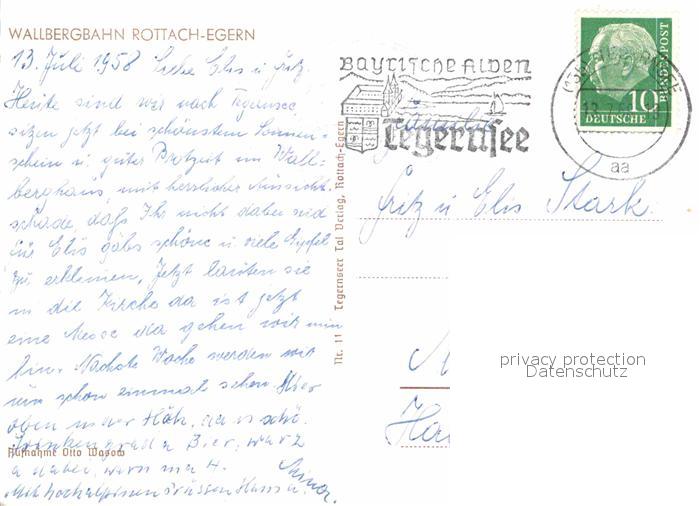 WALLBERGBAHN ROTTACH-EGERN
13. Juli 1958 Liebe Elis u. Fritz.
Heute sind wir nach Tegernsee
sitzen jetzt bei schönstem Sonnen=
schein u. guter Brotzeit im Wall=
berghaus, mit herrlicher Aussicht.
schade, daß Ihr nicht dabei seid
für Elis gäbs schöne u. viele Gipfel
zu erklimmen, Jetzt läuten sie
in die Kirche da ist jetzt
eine Messe da gehen wir nun
hin. Nächste Woche werden wir
uns schon einmal sehen. Hier
oben in der Höh, da is schö.
a Bier, wurz
a dabei,
Mit hochalpinen Grüssen Hans u.
Aufnahme Otto Wasow
Nr. 11 Tegernseer Tal Verlag, Rottach-Egern
Bayrische Alpen
Tegernsee
10
DEUTSCHE
BUNDESPOST
aa
Familie
Fritz u. Elis Stark.
privacy protection
Datenschutz